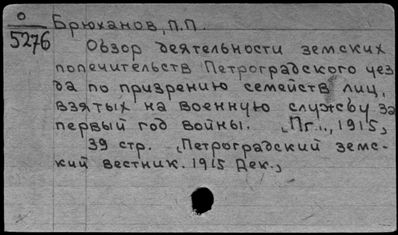 О
5276
Брюханов, П.П.
Обзор деятельности земских
попечительств Петроградского уез
да по призрению семейств лиц,
взятых на военную службу за
первый год войны. „Пг.", 1915,
39 стр. „Петроградский земс-
кий вестник. 1915 Дек.,